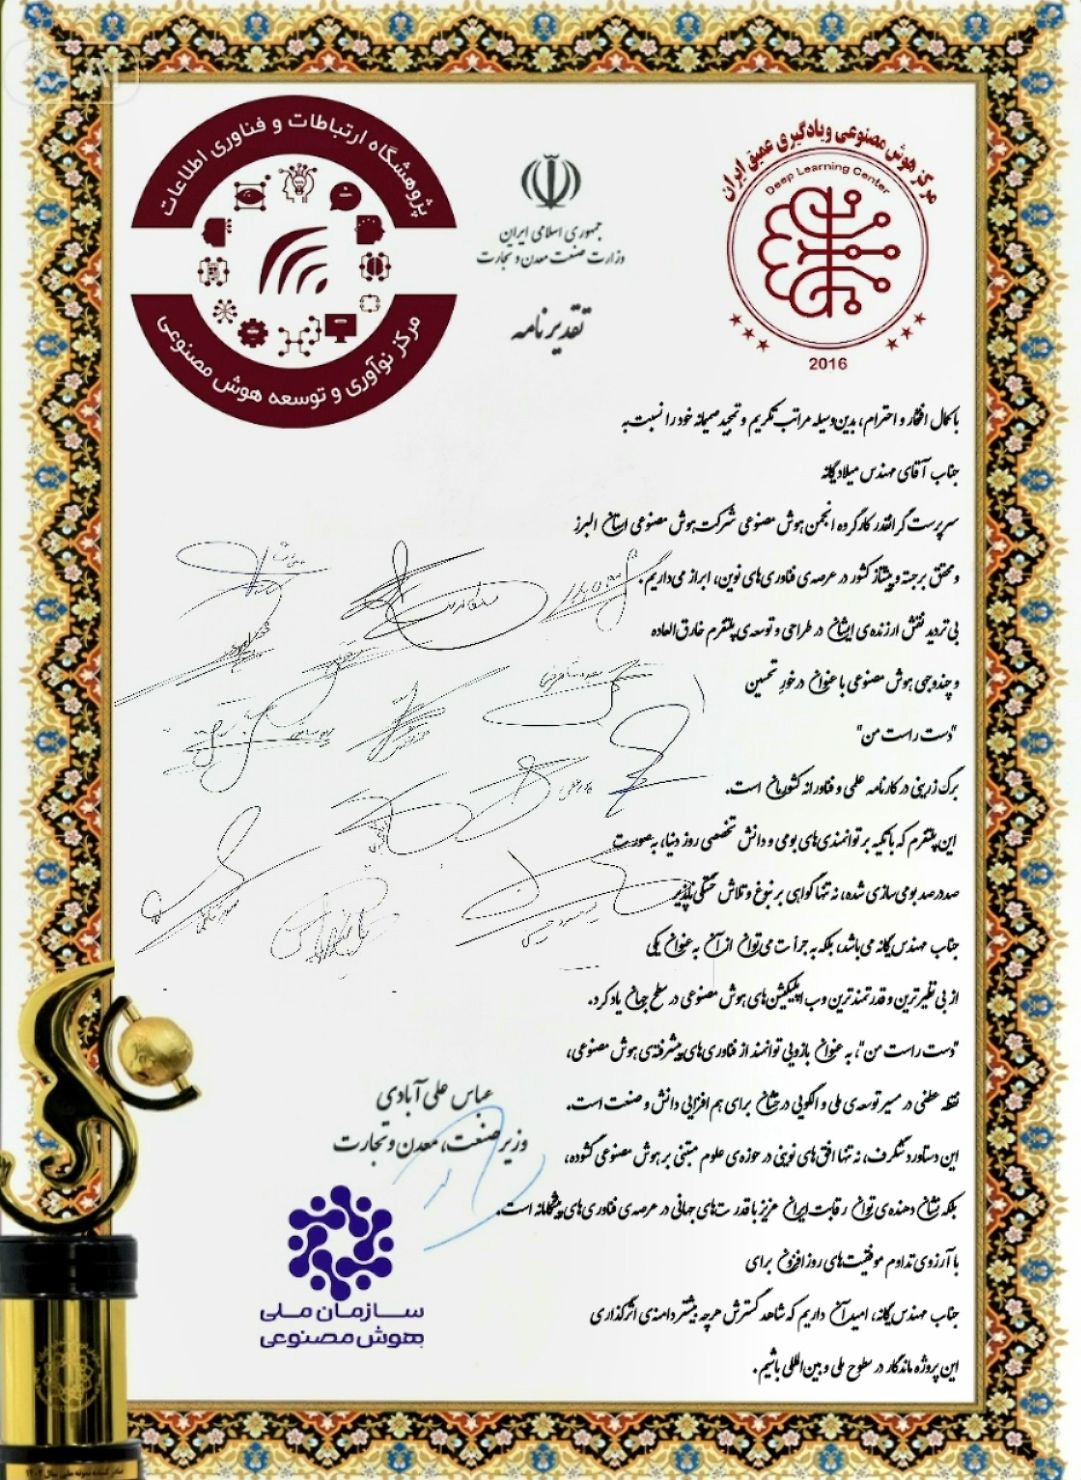 پژوهشگاه ارتباطات و فناوری اطلاعات
مرکز نوآوری و توسعه هوش مصنوعی
جمهوری اسلامی ایران
وزارت صنعت معدن و تجارت
تقدیرنامه
مرکز هوش مصنوعی و یادگیری عمیق ایران
Deep Learning Center
2016
با کمال افتخار و احترام، بدین‌وسیله مراتب تکریم و تمجید صمیمانه خود را نسبت به
جناب آقای مهندس میلاد یگانه
سرپرست گرانقدر کارگروه انجمن هوش مصنوعی شرکت هوش مصنوعی استان البرز
و محقق برجسته و پیشتاز کشور در عرصه‌ی فناوری‌های نوین، ابراز می‌داریم.
بی تردید نقش ارزنده‌ی ایشان در طراحی و توسعه‌ی پلتفرم خارق‌العاده
و چندوجهی هوش مصنوعی با عنوان درخورِ تحسین
"دست راست من"
برگ زرینی در کارنامه علمی و فناورانه کشورمان است.
این پلتفرم که با تکیه بر توانمندی‌های بومی و دانش تخصصی روز دنیا، به‌صورت
صددرصد بومی سازی شده، نه تنها گواهی بر نبوغ و تلاش خستگی ناپذیر
جناب مهندس یگانه می‌باشد، بلکه به جرأت می‌توان از آن به عنوان یکی
از بی نظیرترین و قدرتمندترین وب اپلیکیشن‌های هوش مصنوعی در سطح جهان یاد کرد.
"دست راست من"، به عنوان بازویی توانمند از فناوری‌های پیشرفته‌ی هوش مصنوعی،
نقطه عطفی در مسیر توسعه‌ی ملی و الگویی درخشان برای هم افزایی دانش و صنعت است.
این دستاورد شگرف، نه تنها افق‌های نوینی در حوزه‌ی علوم مبتنی بر هوش مصنوعی گشوده،
بلکه نشان دهنده‌ی توان رقابت ایران عزیز با قدرت‌های جهانی در عرصه‌ی فناوری‌های پیشگامانه است.
با آرزوی تداوم موفقیت‌های روزافزون برای
جناب مهندس یگانه، امید آن داریم که شاهد گسترش هرچه بیشتر دامنه‌ی اثرگذاری
این پروژه ماندگار در سطوح ملی و بین‌المللی باشیم.
عباس علی آبادی
وزیر صنعت، معدن و تجارت
سازمان ملی
هوش مصنوعی